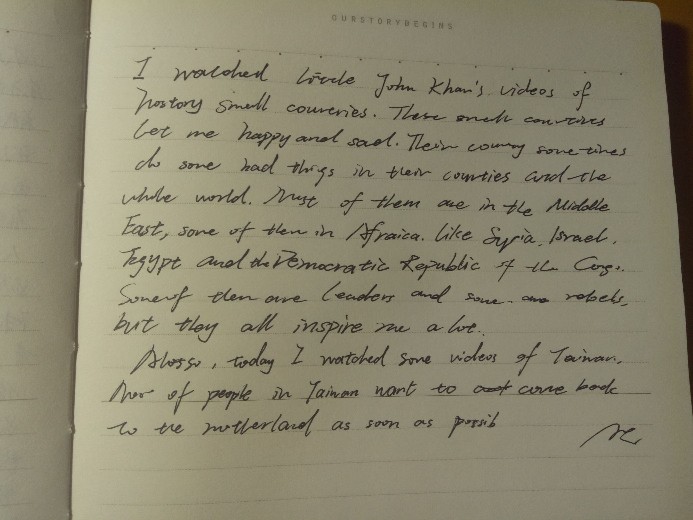 OURSTORYBEGINS
I watched little John Khan's videos of
history small countries. These small countries
let me happy and sad. Their county sometimes
do some bad things in their counties and the
whole world. Most of them are in the Middle
East, some of them in Afraica. Like Syria, Israel,
Egypt and the Democratic Republic of the Congo.
Some of them are leaders and some are rebels,
but they all inspire me a lot.
Alosso, today I watched some videos of Taiwan.
of people in Taiwan want to come back
to the motherland as soon as possib